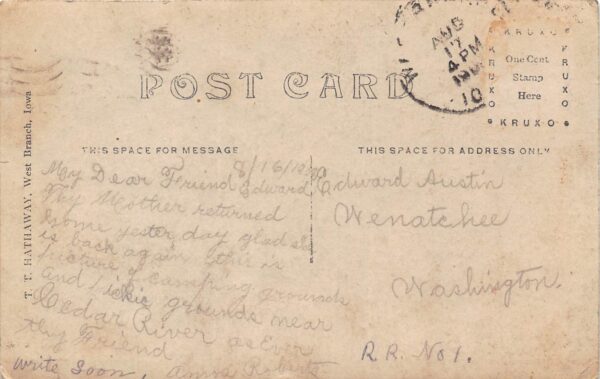 AUG
17
4 PM
POST CARD
KRUXO
KRUXO
One Cent
Stamp
Here
KRUXO
KRUXO
THIS SPACE FOR MESSAGE
THIS SPACE FOR ADDRESS ONLY
T. T. HATHAWAY, West Branch, Iowa
8/16/10
My Dear Friend Edward
Thy Mother returned
home yesterday glad she
is back again this is
picture of camping grounds
and picnic grounds near
Cedar River as Ever
thy Friend
Anna Roberts
Write Soon.
Edward Austin
Wenatchee
Washington.
R.R. No 1.